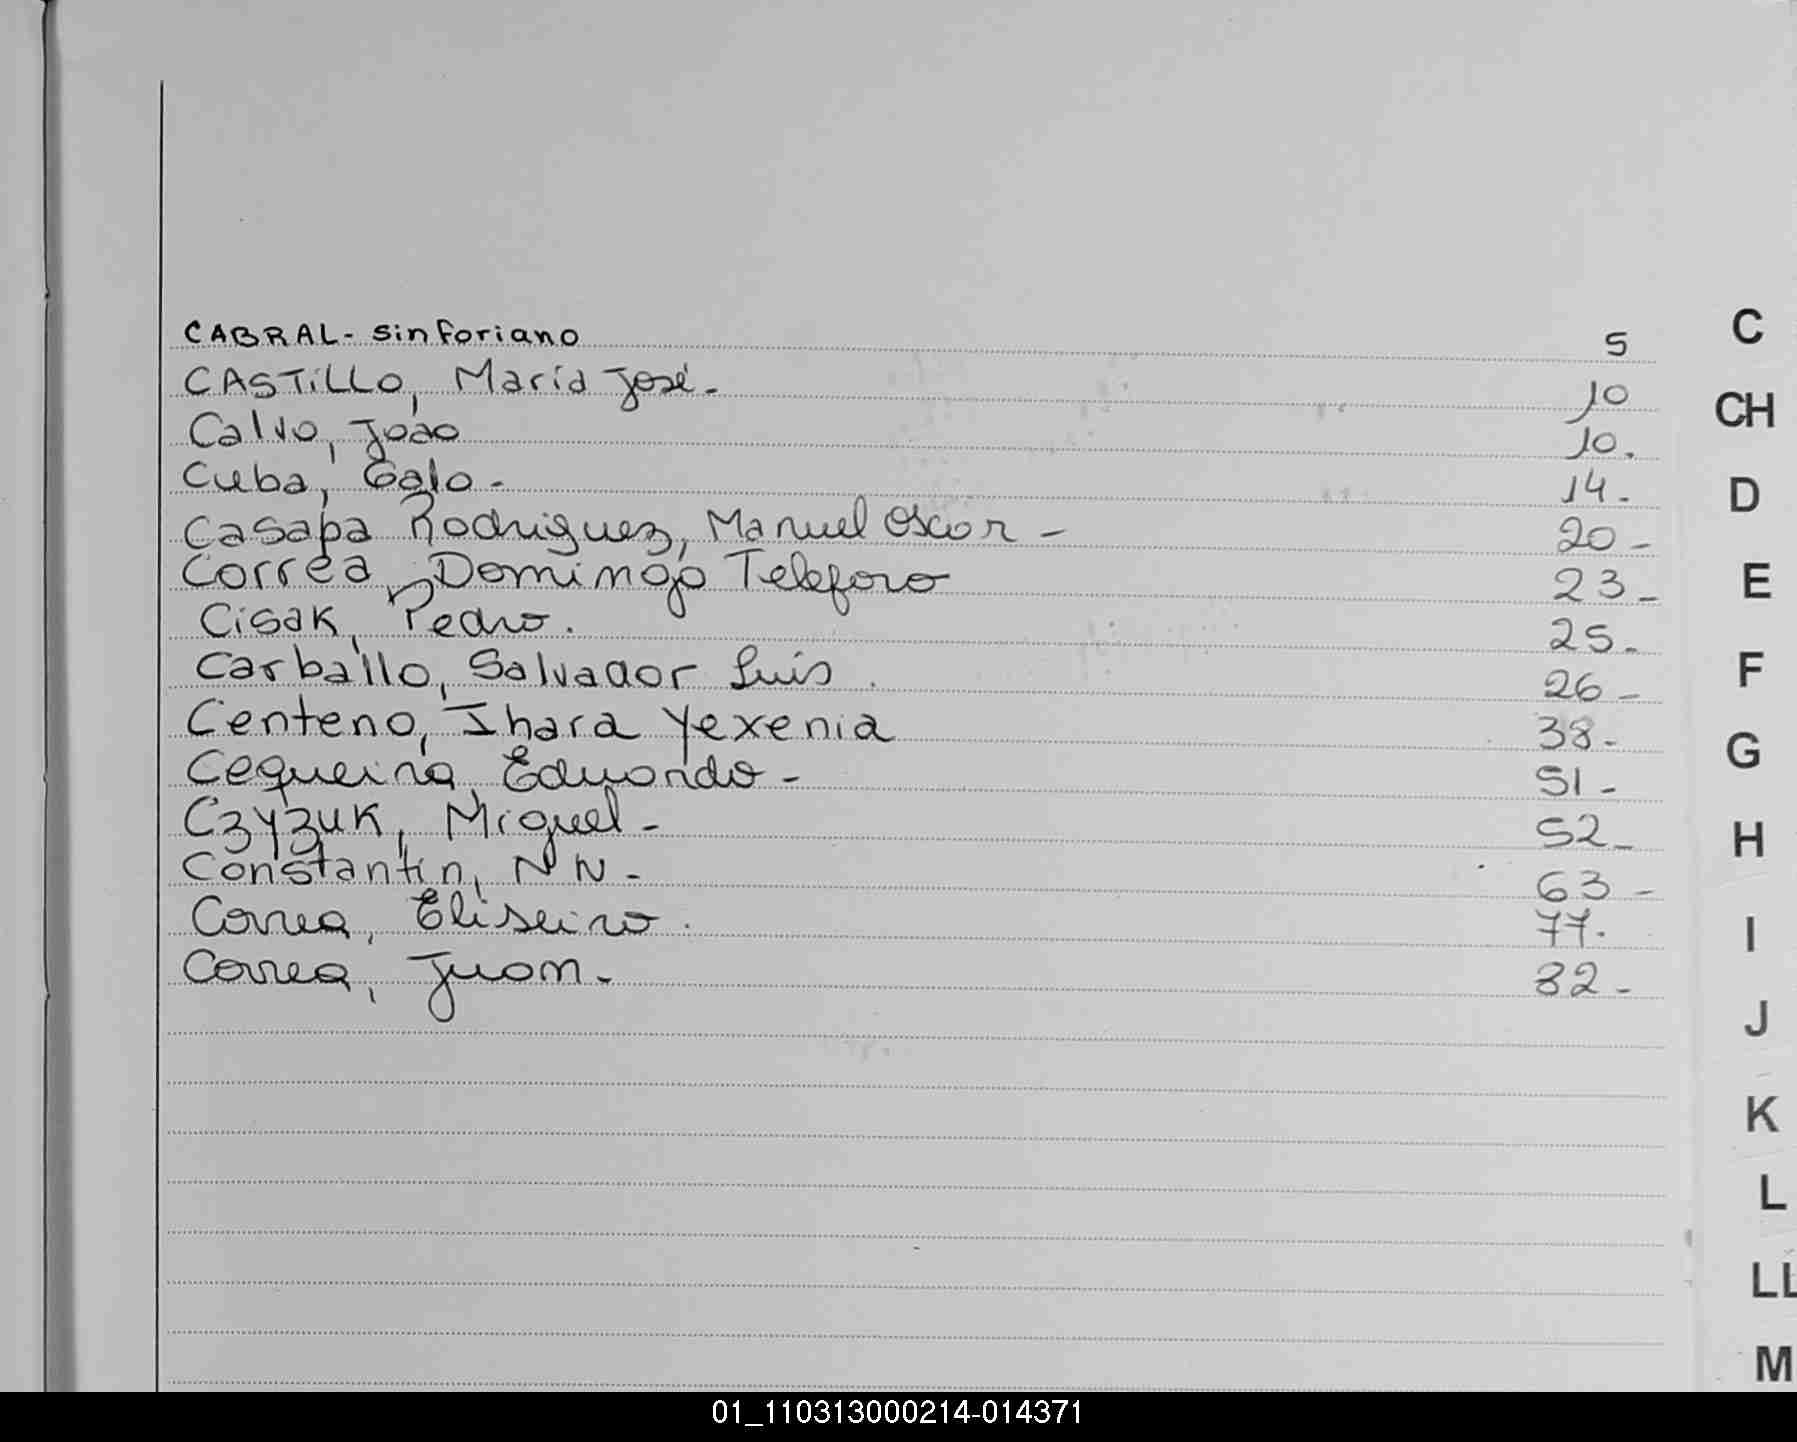 CABRAL - Sinforiano 5
CASTiLLO, María José. 10
Calvo, Joao 10.
Cuba, Galo - 14.
Casapa Rodriguez, Manuel Oscar - 20 -
Correa, Domingo Teleforo 23 -
Cisak, Pedro. 25 -
Carballo, Salvador Luis. 26 -
Centeno, Ihara Yexenia 38 -
Cequeira, Eduardo - 51 -
Czyzuk, Miguel - 52 -
Constantin, N N - 63 -
Correa, Eliseiro. 77.
Correa, Juan. 82 -
C
CH
D
E
F
G
H
I
J
K
L
LL
M
01_110313000214-014371